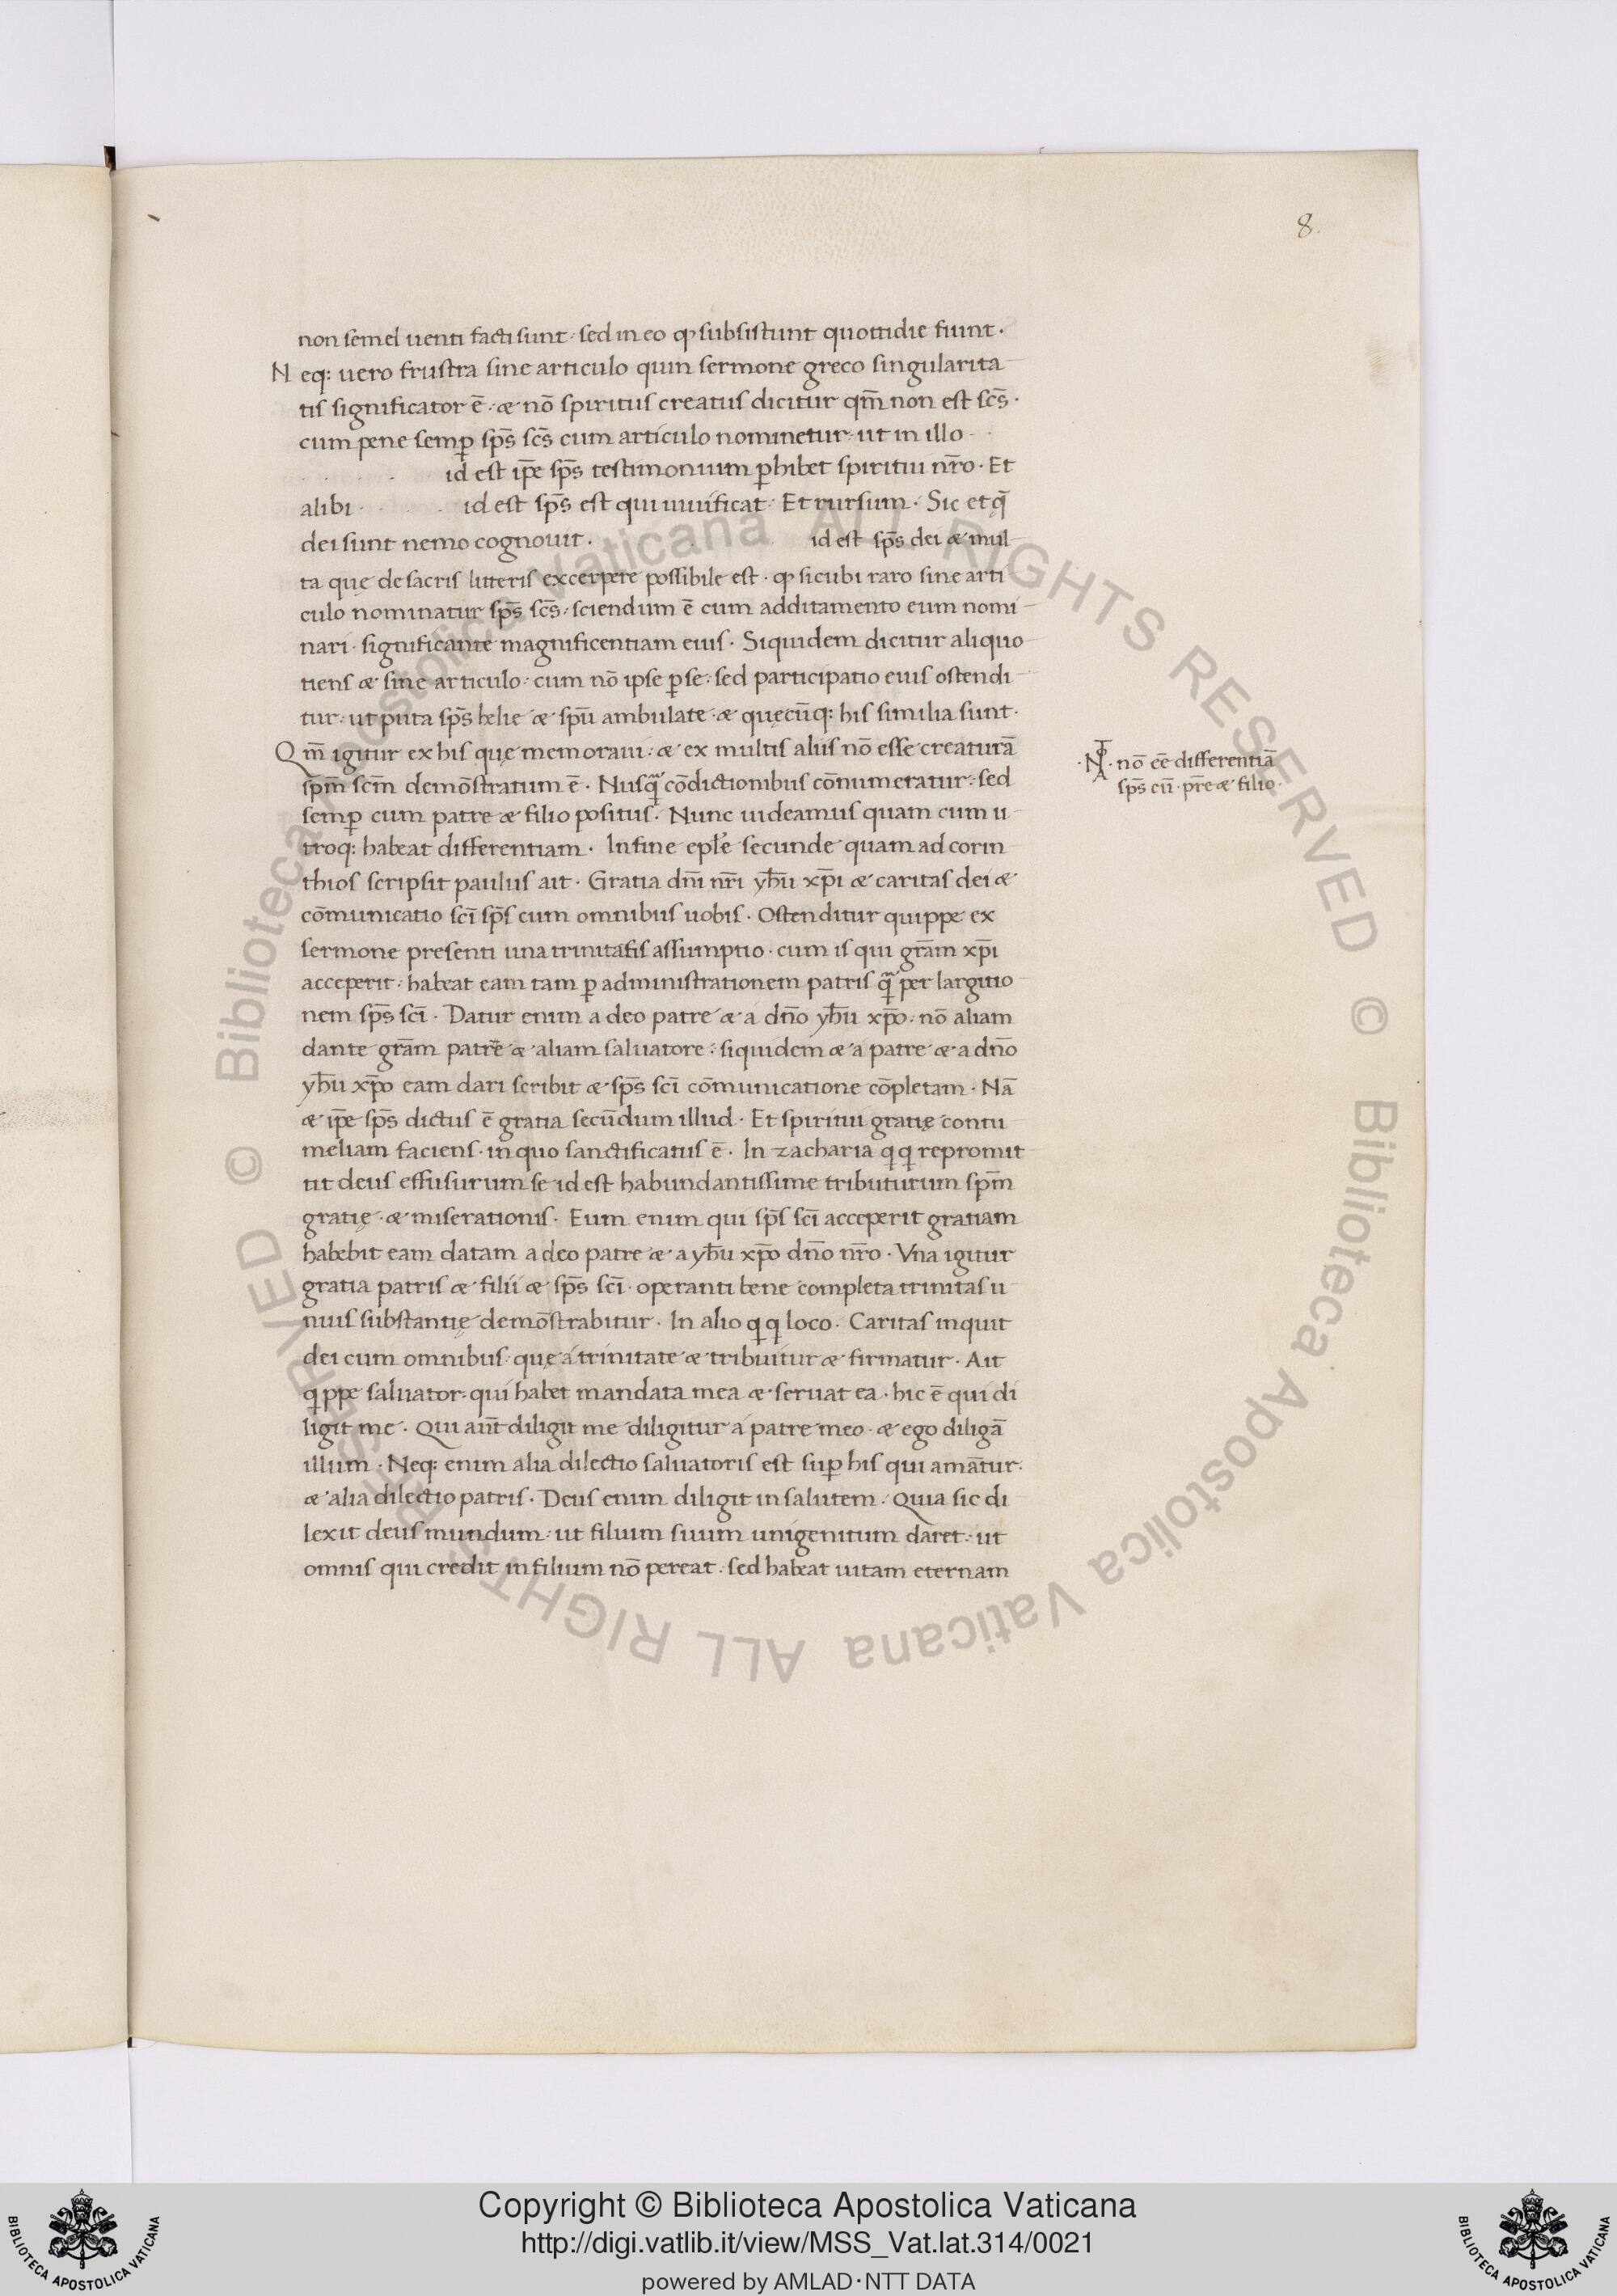 8.
non semel uenti facti sunt · sed in eo ꝙ subsistunt quottidie fiunt ·
N eq: uero frustra sine articulo qui in sermone greco singularita
tis significator ē : æ nō spiritus creatus dicitur qm̄ non est scs̄ ·
cum pene semꝑ sps̄ scs̄ cum articulo nominetur : ut in illo
id est ip̄e sps̄ testimonium ꝑhibet spiritui nr̄o · Et
alibi id est sps̄ est qui uiuificat · Et rursum · Sic et q̄
dei sunt nemo cognouit . id est sps̄ dei æ mul
ta quę de sacris litteris excerpere possibile est · ꝙ sicubi raro sine arti
culo nominatur sps̄ scs̄ : sciendum ē cum additamento eum nomi
nari · significante magnificentiam eius · Siquidem dicitur aliquo
tiens æ sine articulo : cum nō ipse ꝑ se : sed participatio eius ostendi
tur : ut puta sps̄ helie æ spū ambulate · æ quęcūq: his similia sunt ·
Q m̄ igitur ex his quę memoraui : æ ex multis aliis nō esse creaturā
spm̄ scm̄ demōstratum ē · Nusq̄ cōdictionibus cōnumeratur : sed
semꝑ cum patre æ filio positus · Nunc uideamus quam cum u
troq: habeat differentiam · In fine epłe secunde quam ad corin
thios scripsit paulus ait · Gratia dn̄i nr̄i yhū xp̄i æ caritas dei æ
cōmunicatio scī sps̄ cum omnibus uobis · Ostenditur quippe ex
sermone presenti una trinitatis assumptio · cum is qui grām xp̄i
acceperit : habeat eam tam ꝑ administrationem patris q̄ per largitio
nem sps̄ scī · Datur enim a deo patre æ a dn̄o yhū xp̄o : nō aliam
dante grām patre æ aliam saluatore : siquidem æ a patre æ a dn̄o
yhū xp̄o eam dari scribit æ sps̄ scī cōmunicatione cōpletam · Nā
æ ip̄e sps̄ dictus ē gratia secūdum illud · Et spiritui gratię contu
meliam faciens · in quo sanctificatus ē · In zacharia q q repromit
tit deus effusurum se id est habundantissime tributurum spm̄
gratię · æ miserationis · Eum enim qui sps̄ scī acceperit gratiam
habebit eam datam a deo patre æ · a yhū xp̄o dn̄o nr̄o · Vna igitur
gratia patris æ filii æ sps̄ scī · operanti bene completa trinitas u
nius substantię demōstrabitur · In alio q q loco · Caritas inquit
dei cum omnibus · quę á trinitate æ tribuitur æ firmatur · Ait
q ppe saluator : qui habet mandata mea æ seruat ea · hic ē qui di
ligit me · Qui aūt diligit me diligitur á patre meo · æ ego diligā
illum · Neq: enim alia dilectio saluatoris est suꝑ his qui amātur ·
æ alia dilectio patris · Deus enim diligit in salutem · Quia sic di
lexit deus mundum : ut filium suum unigenitum daret : ut
omnis qui credit in filium nō pereat · sed habeat uitam eternam
· nō eē differentiā
sps̄ cū · pr̄e æ filio ·
© Biblioteca Apostolica Vaticana ALL RIGHTS RESERVED
© Biblioteca Apostolica Vaticana ALL RIGHTS RESERVED
Copyright © Biblioteca Apostolica Vaticana
http://digi.vatlib.it/view/MSS_Vat.lat.314/0021
powered by AMLAD·NTT DATA
BIBLIOTECA APOSTOLICA VATICANA
BIBLIOTECA APOSTOLICA VATICANA